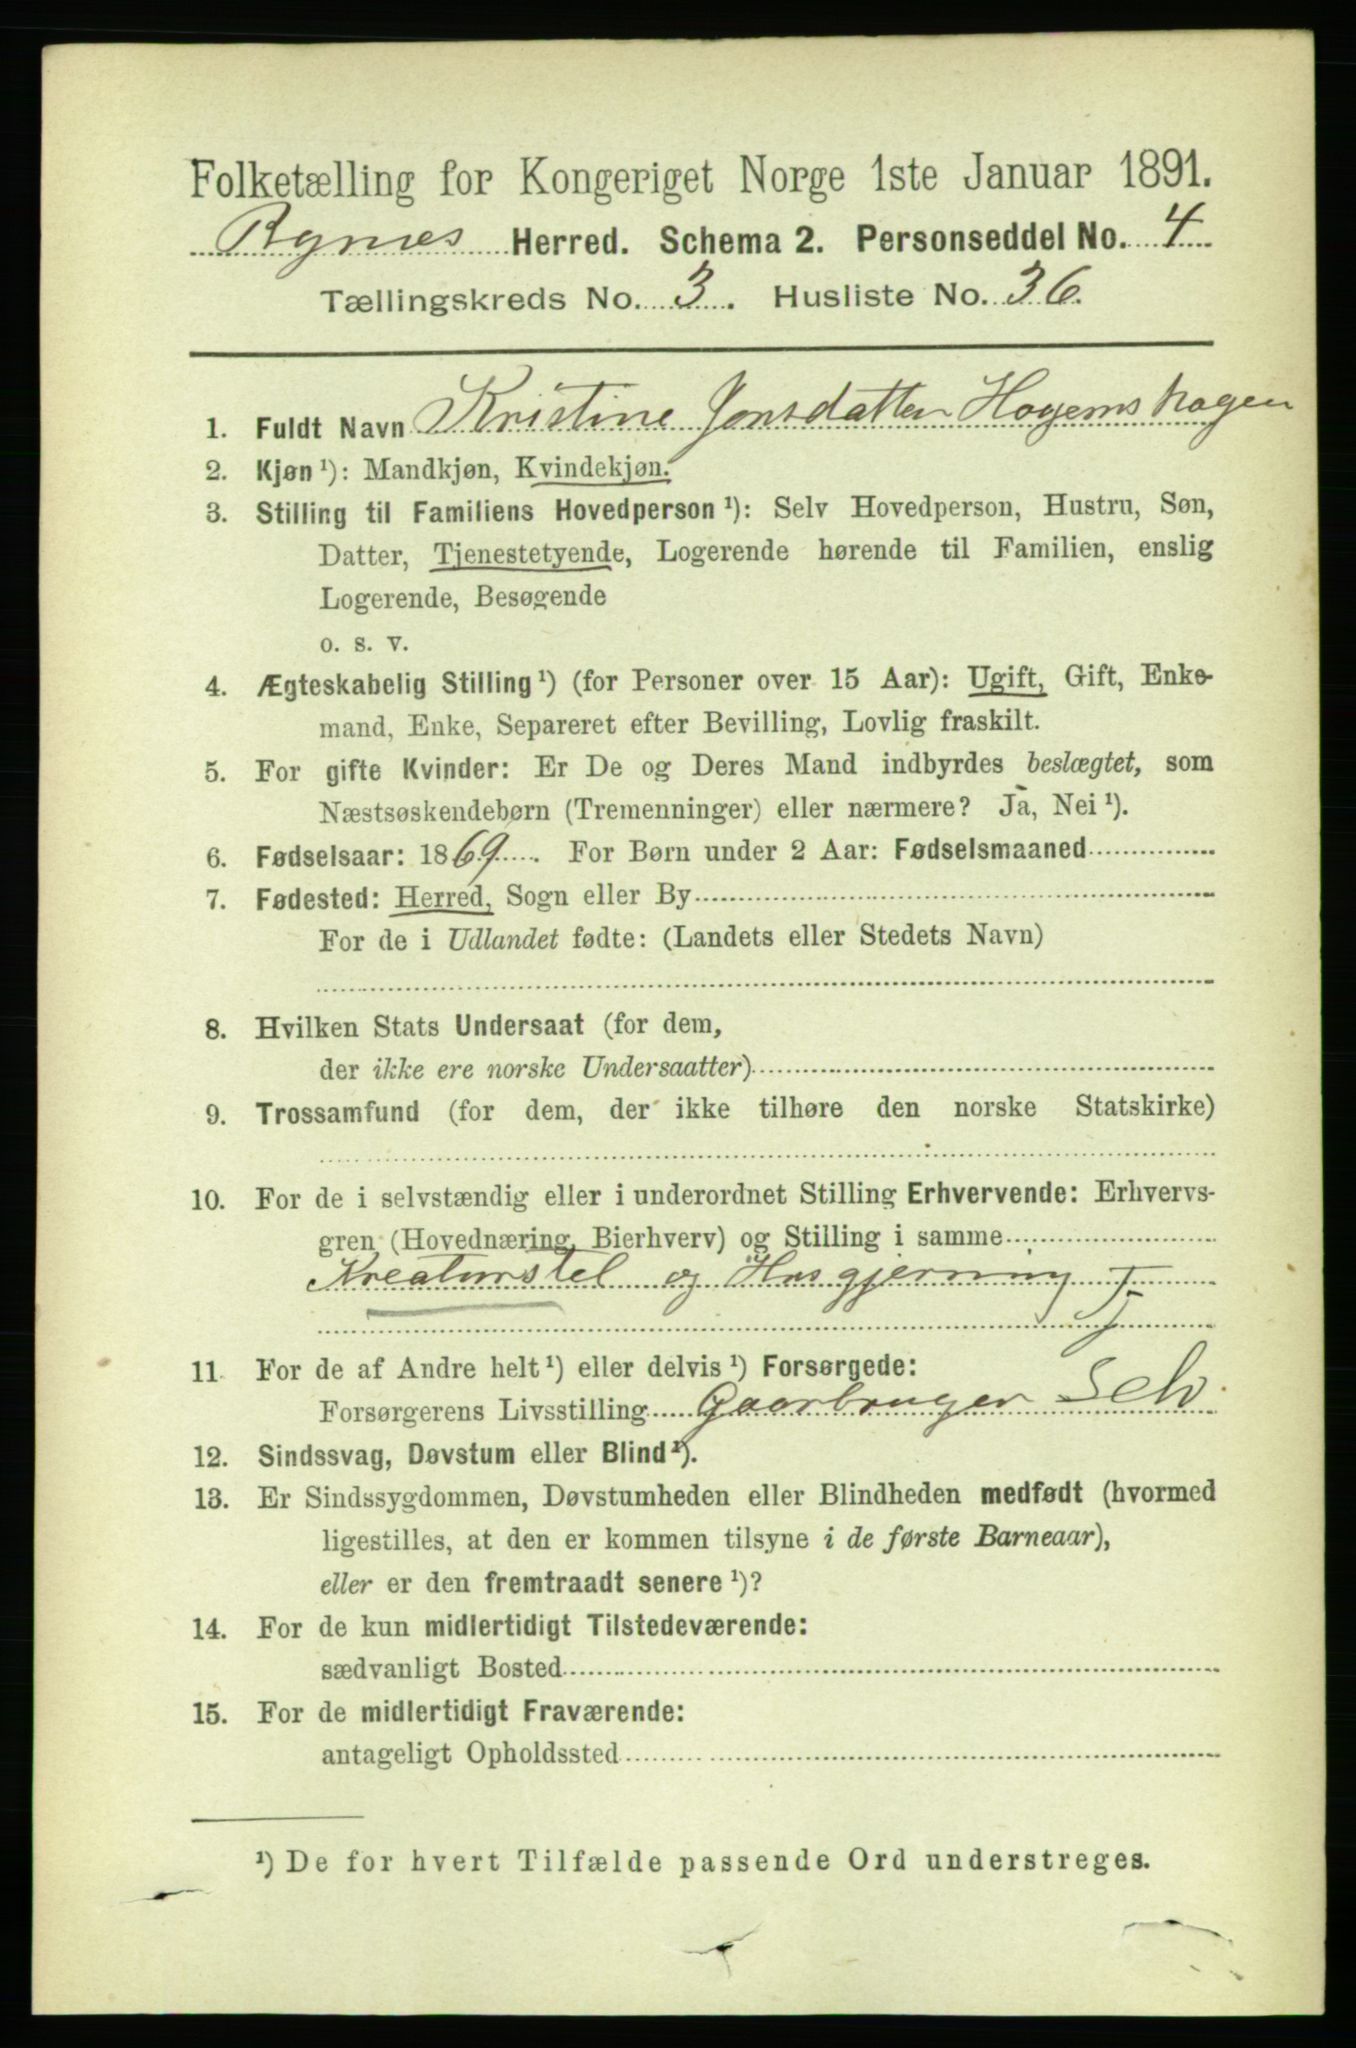 Folketælling for Kongeriget Norge 1ste Januar 1891.
Bynes Herred. Schema 2. Personseddel No. 4
Tællingskreds No. 3. Husliste No. 36.
1. Fuldt Navn Kristine Jonsdatter Hogemshagen
2. Kjøn ¹): Mandkjøn, Kvindekjøn.
3. Stilling til Familiens Hovedperson ¹): Selv Hovedperson, Hustru, Søn,
Datter, Tjenestetyende, Logerende hørende til Familien, enslig
Logerende, Besøgende
o. s. v.
4. Ægteskabelig Stilling ¹) (for Personer over 15 Aar): Ugift, Gift, Enke-
mand, Enke, Separeret efter Bevilling, Lovlig fraskilt.
5. For gifte Kvinder: Er De og Deres Mand indbyrdes beslægtet, som
Næstsøskendebørn (Tremenninger) eller nærmere? Ja, Nei ¹).
6. Fødselsaar: 1869. For Børn under 2 Aar: Fødselsmaaned
7. Fødested: Herred, Sogn eller By
For de i Udlandet fødte: (Landets eller Stedets Navn)
8. Hvilken Stats Undersaat (for dem,
der ikke ere norske Undersaatter)
9. Trossamfund (for dem, der ikke tilhøre den norske Statskirke)
10. For de i selvstændig eller i underordnet Stilling Erhvervende: Erhvervs-
gren (Hovednæring, Bierhverv) og Stilling i samme
Kreaturstel og Husgjerning T
11. For de af Andre helt ¹) eller delvis ¹) Forsørgede:
Forsørgerens Livsstilling Gaarbruger Selv.
12. Sindssvag, Døvstum eller Blind ¹).
13. Er Sindssygdommen, Døvstumheden eller Blindheden medfødt (hvormed
ligestilles, at den er kommen tilsyne i de første Barneaar),
eller er den fremtraadt senere ¹)?
14. For de kun midlertidigt Tilstedeværende:
sædvanligt Bosted
15. For de midlertidigt Fraværende:
antageligt Opholdssted
¹) De for hvert Tilfælde passende Ord understreges.